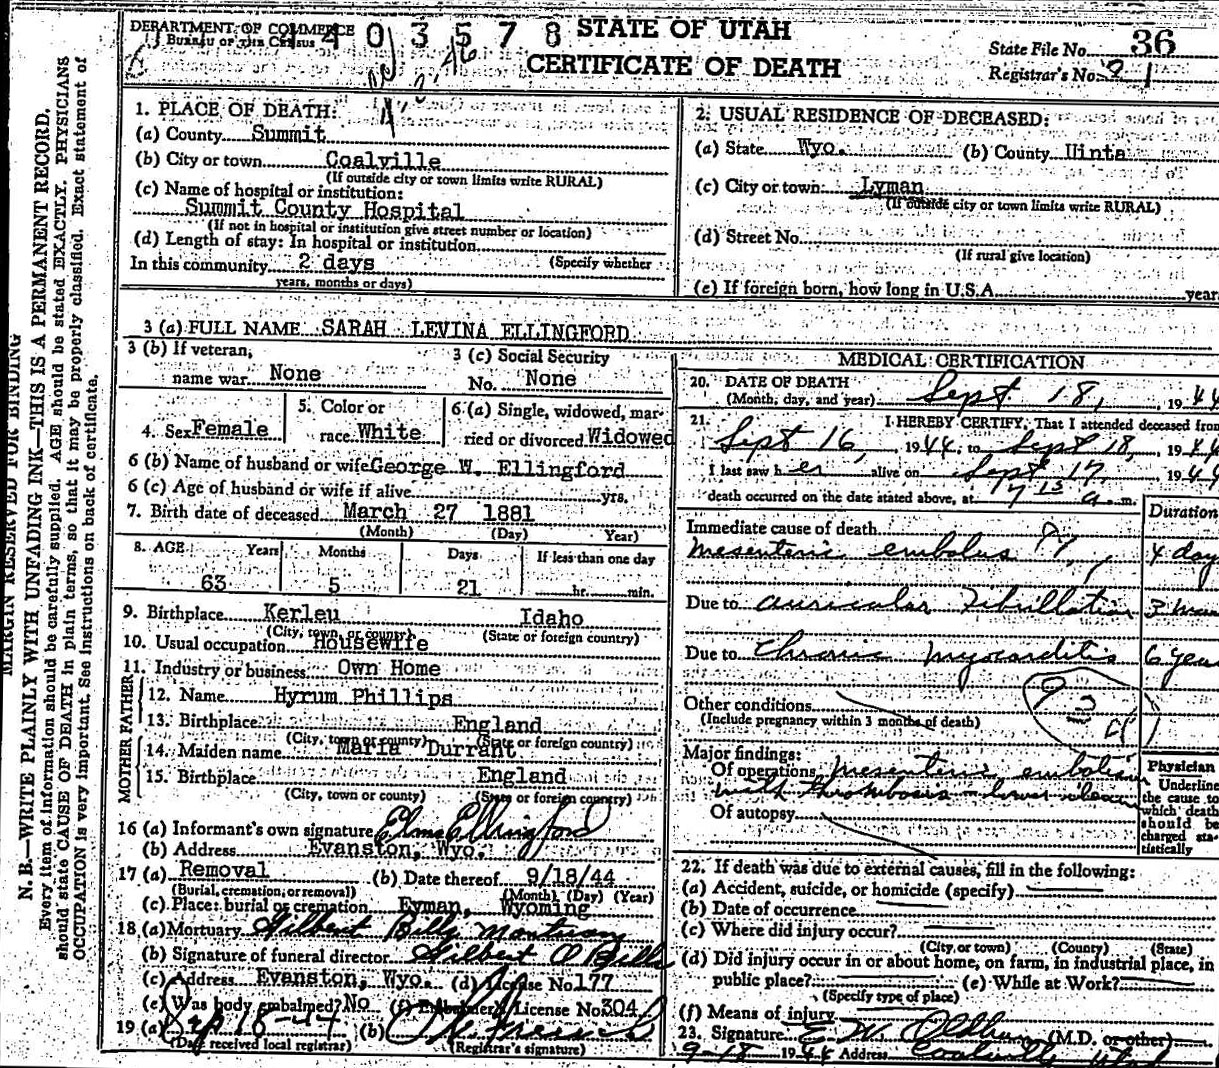 DEPARTMENT OF COMMERCE
BUREAU OF THE CENSUS
4403578
STATE OF UTAH
CERTIFICATE OF DEATH
State File No. 36
Registrar's No. 91
MARGIN RESERVED FOR BINDING
N. B.—WRITE PLAINLY WITH UNFADING INK—THIS IS A PERMANENT RECORD.
Every item of information should be carefully supplied. AGE should be stated EXACTLY. PHYSICIANS
should state CAUSE OF DEATH in plain terms, so that it may be properly classified. Exact statement of
OCCUPATION is very important. See instructions on back of certificate.
1. PLACE OF DEATH:
(a) County Summit
(b) City or town Coalville
(If outside city or town limits write RURAL)
(c) Name of hospital or institution:
Summit County Hospital
(If not in hospital or institution give street number or location)
(d) Length of stay: In hospital or institution
In this community 2 days (Specify whether
years, months or days)
2. USUAL RESIDENCE OF DECEASED:
(a) State Wyo. (b) County Uinta
(c) City or town: Lyman
(If outside city or town limits write RURAL)
(d) Street No.
(If rural give location)
(e) If foreign born, how long in U.S.A. year
3 (a) FULL NAME SARAH LEVINA ELLINGFORD
3 (b) If veteran, name war None
3 (c) Social Security No. None
4. Sex Female
5. Color or race White
6. (a) Single, widowed, married or divorced Widowed
6 (b) Name of husband or wife George W. Ellingford
6 (c) Age of husband or wife if alive yrs.
7. Birth date of deceased March 27 1881
(Month) (Day) Year)
8. AGE Years Months Days If less than one day
63 5 21 hr. min.
9. Birthplace Kerleu Idaho
(City, town, or county) (State or foreign country)
10. Usual occupation Housewife
11. Industry or business Own Home
FATHER
12. Name Hyrum Phillips
13. Birthplace England
(City, town or county) (State or foreign country)
MOTHER
14. Maiden name Maria Durrant
15. Birthplace England
(City, town or county) (State or foreign country)
16 (a) Informant's own signature Elma Ellingford
(b) Address Evanston, Wyo.
17 (a) Removal (b) Date thereof 9/18/44
(Burial, cremation, or removal) (Month) (Day) (Year)
(c) Place: burial or cremation Eyman, Wyoming
18 (a) Mortuary Gilbert Bills Mortuary
(b) Signature of funeral director Gilbert O Bills
(c) Address Evanston, Wyo. (d) License No 177
(e) Was body embalmed? No (f) Embalmer's License No. 304
19 (a) Sep 18-44 (b)
(Day received local registrar) (Registrar's signature)
MEDICAL CERTIFICATION
20. DATE OF DEATH
(Month, day, and year) Sept. 18, 1944
21. I HEREBY CERTIFY, That I attended deceased from
Sept 16, 1944, to Sept 18, 1944
I last saw her alive on Sept 17, 1944
death occurred on the date stated above, at 7 15 a. m.
Duration
Immediate cause of death
mesenteric embolus 4 day
Due to auricular fibrillation 3
Due to Chronic myocarditis 6 year
Other conditions
(Include pregnancy within 3 months of death)
Major findings:
Of operations mesenteric embolism
with thrombosis - lower ileum
Of autopsy
Physician
Underline
the cause to
which death
should be
charged sta-
tistically
22. If death was due to external causes, fill in the following:
(a) Accident, suicide, or homicide (specify)
(b) Date of occurrence
(c) Where did injury occur?
(City, or town) (County) (State)
(d) Did injury occur in or about home, on farm, in industrial place, in
public place? (e) While at Work?
(Specify type of place)
(f) Means of injury
23. Signature E. W. Oldham (M.D. or other)
9-18-1944 Address Coalville Utah